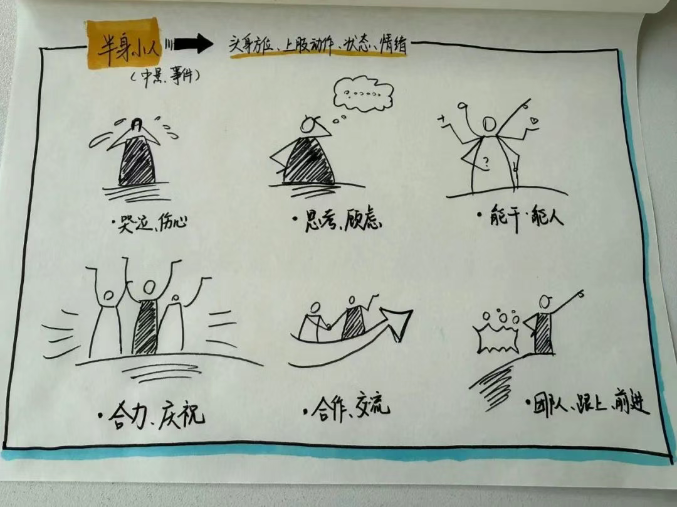 半身小人
头身方位、上肢动作、状态、情绪
(中景、事件)
······
·哭泣、伤心
·思考、顾虑
?
·能干·能人
·合力、庆祝
·合作、交流
·团队、跟上、前进